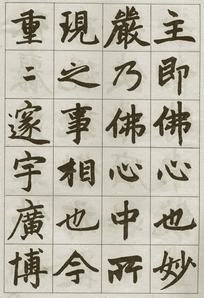 主即佛心也妙
嚴乃佛心中所
現之事相也今
重〻邃宇廣博